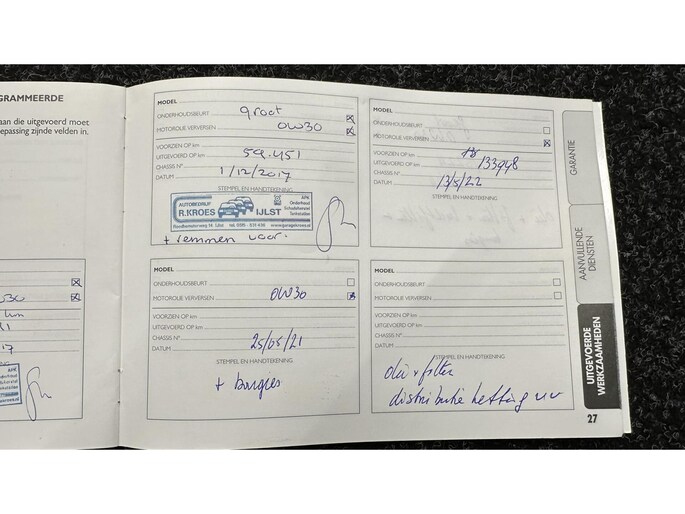 GRAMMEERDE
aan die uitgevoerd moet
epassing zijnde velden in.
MODEL
ONDERHOUDSBEURT groot
MOTOROLIE VERVERSEN 0W30
VOORZIEN OP km
UITGEVOERD OP km 59.451
CHASSIS N°
DATUM 1/12/2017
STEMPEL EN HANDTEKENING
AUTOBEDRIJF
R.KROES IJLST
APK
Onderhoud
Schadeherstel
Tankstation
+ remmen voor.
MODEL
ONDERHOUDSBEURT
MOTOROLIE VERVERSEN
VOORZIEN OP km
UITGEVOERD OP km 133948
CHASSIS N°
DATUM 17/5/22
STEMPEL EN HANDTEKENING
MODEL
ONDERHOUDSBEURT
MOTOROLIE VERVERSEN 0W30
VOORZIEN OP km
UITGEVOERD OP km
CHASSIS N°
DATUM 25/05/21
STEMPEL EN HANDTEKENING
+ bougies
MODEL
ONDERHOUDSBEURT
MOTOROLIE VERVERSEN
VOORZIEN OP km
UITGEVOERD OP km
CHASSIS N°
DATUM
STEMPEL EN HANDTEKENING
olie + filter
distributie ketting
GARANTIE
AANVULLENDE
DIENSTEN
UITGEVOERDE
WERKZAAMHEDEN
27